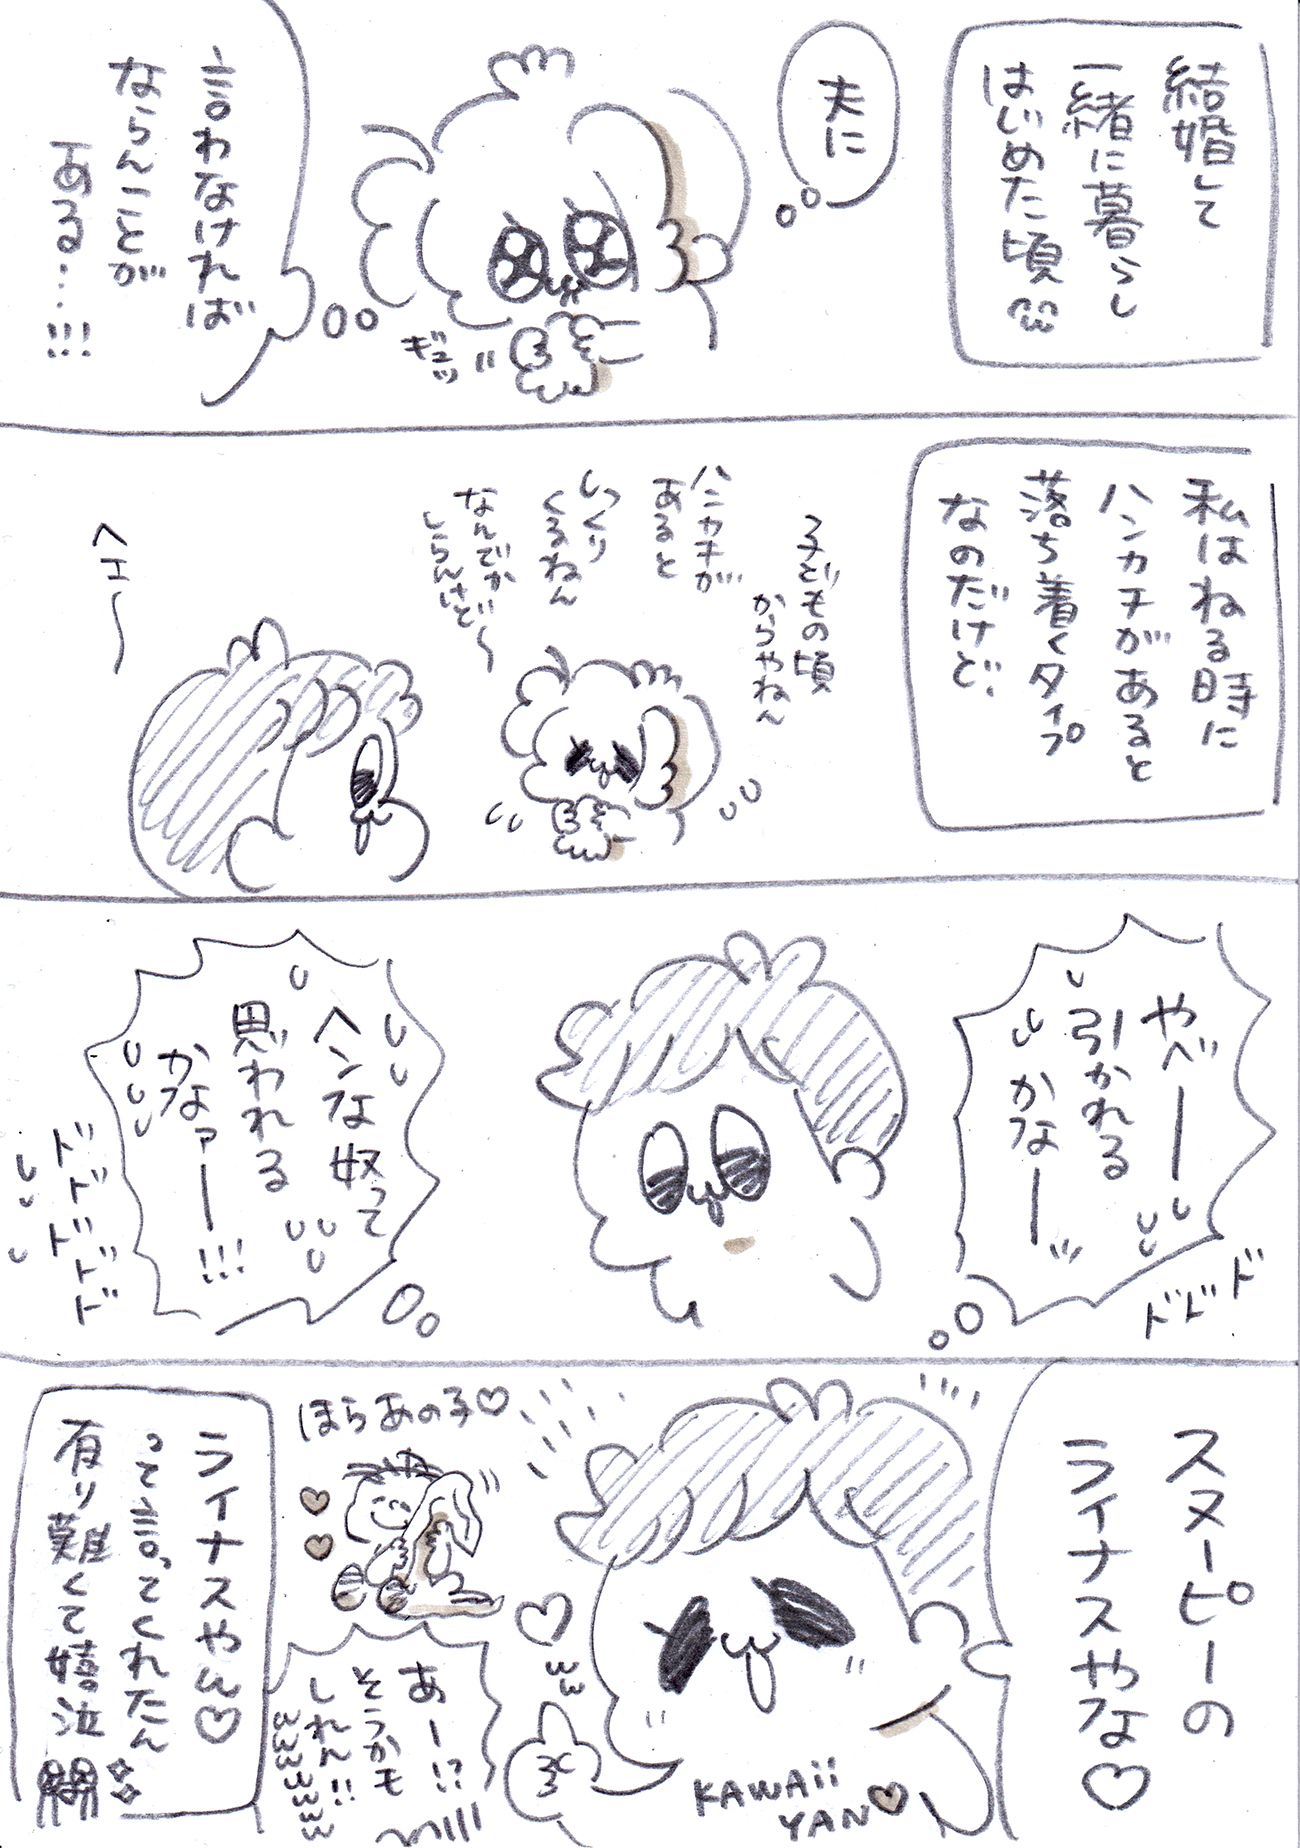 結婚して
一緒に暮らし
はじめた頃
夫に
ギュッ
言わなければ
ならんことが
ある…!!!
私はねる時に
ハンカチがあると
落ち着くタイプ
なのだけど、
子どもの頃
からやねん
ハンカチが
あると
しっくり
くるねん
なんでか
しらんけど〜
ヘエ〜
やべーー
引かれる
かなーー
ドドドド
ヘンな奴って
思われる
かなァーー!!!
ドドドドドド
スヌーピーの
ライナスやな♡
KAWAii
YAN♡
ww
ほらあの子♡
あー!?
そうかも
しれん!!
wwwwwww
ライナスやん♡
って言ってくれたん
有り難くて嬉泣